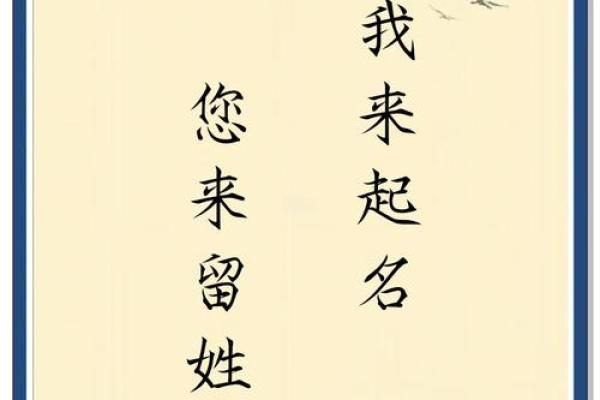 我来起名
您来留姓